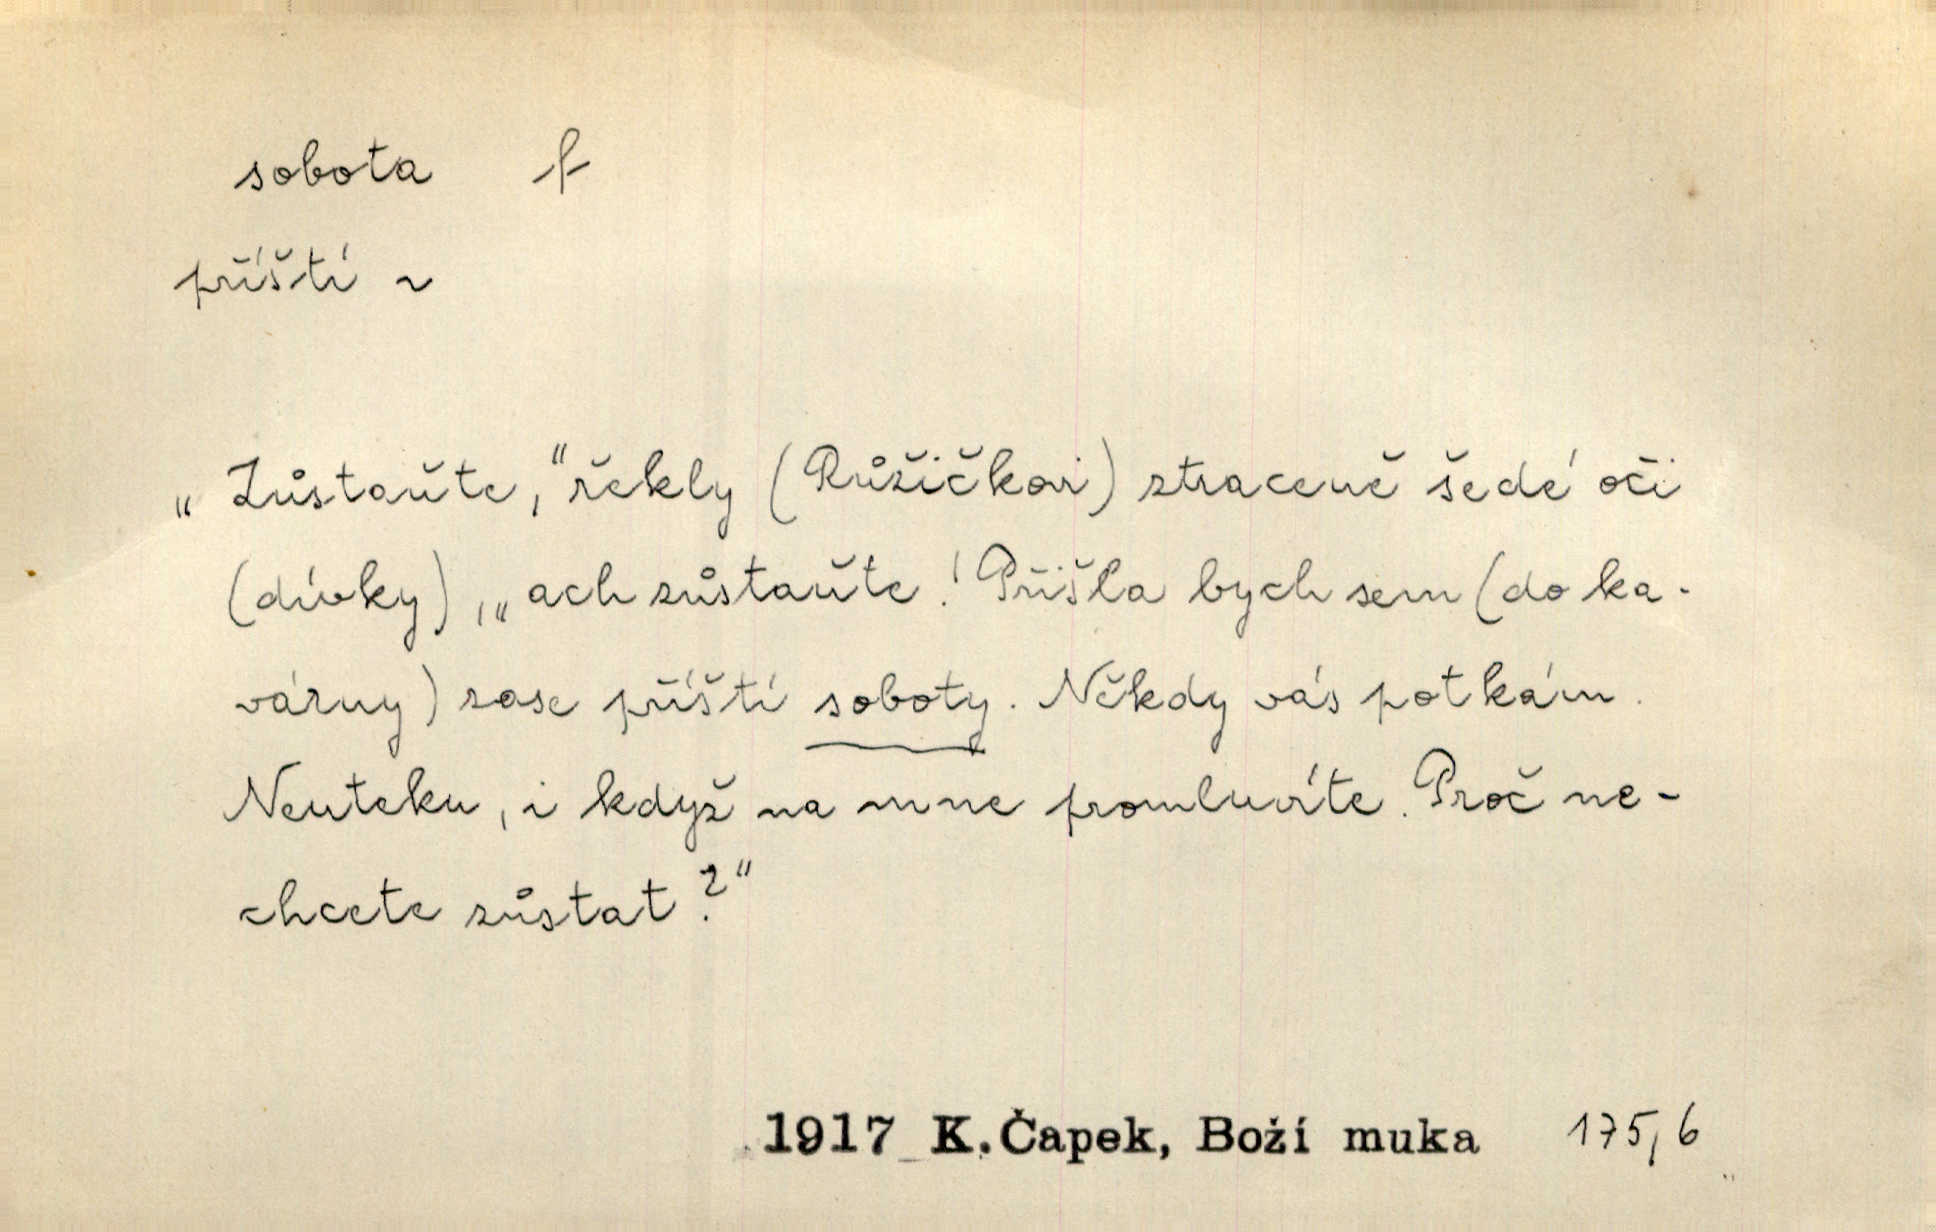 sobota f
příští ~
„Zůstaňte,“ řekly (Růžičkovi) ztraceně šedé oči
(dívky), „ach zůstaňte! Přišla bych sem (do ka-
várny) zase příští soboty. Někdy vás potkám.
Neuteku, i když na mne promluvíte. Proč ne-
chcete zůstat?“
1917 K. Čapek, Boží muka 175,6